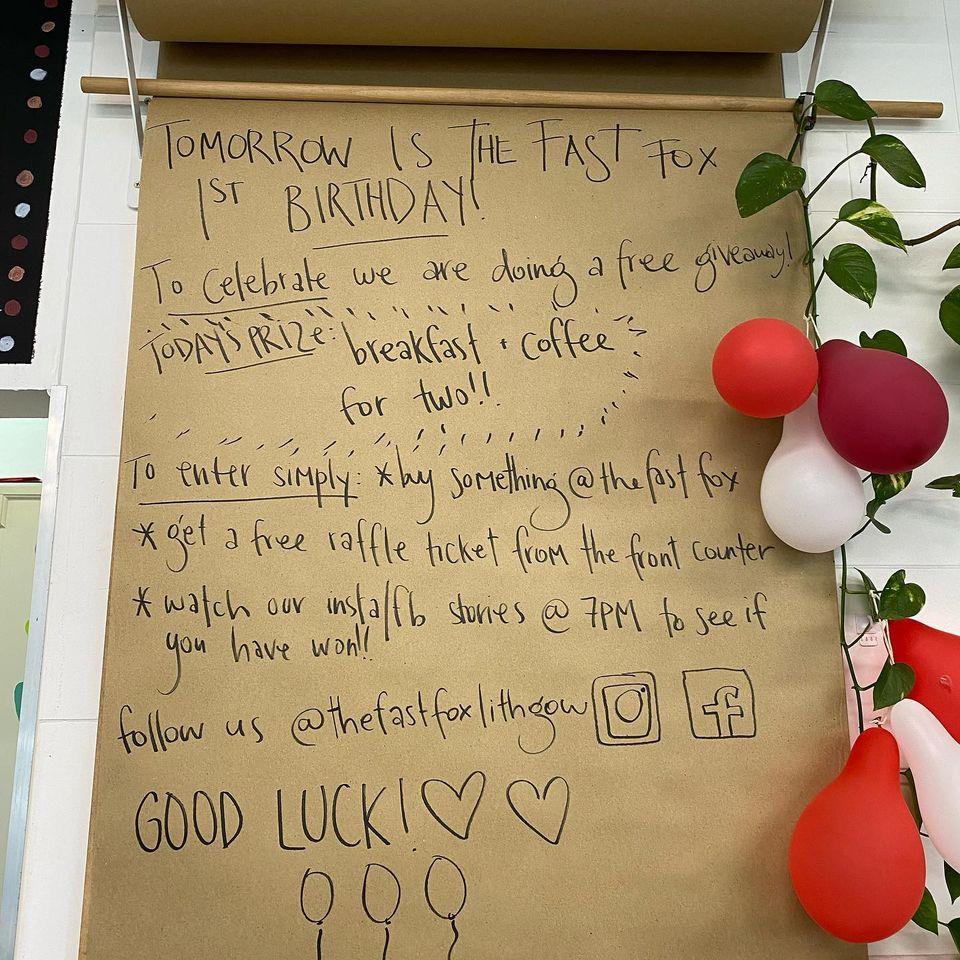 TOMORROW IS THE FAST FOX
1ST BIRTHDAY!
To celebrate we are doing a free giveaway!
TODAY'S PRIZE: breakfast + coffee
for two!!
To enter simply: *by something @thefast fox
* get a free raffle ticket from the front counter
* watch our insta/fb stories @ 7PM to see if
you have won!!
follow us @thefastfoxlithgow
GOOD LUCK!